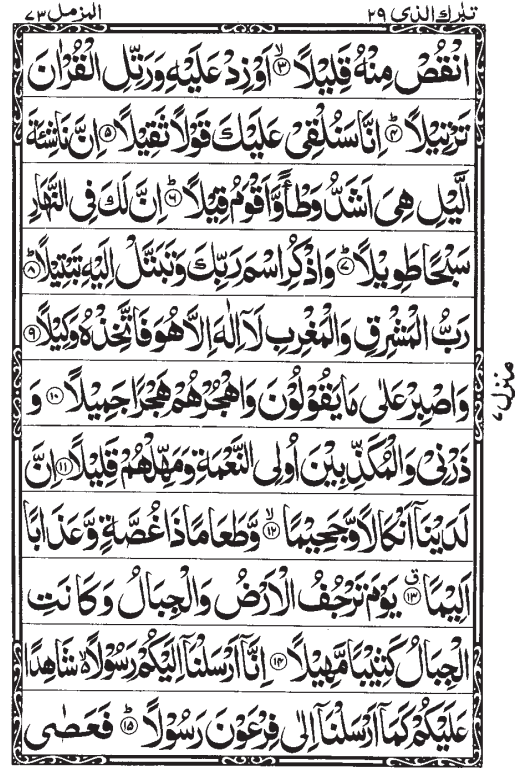 تبٰرك الذی ٢٩
المزمل ٧٣
انْقُصْ مِنْهُ قَلِيْلًا ۙ‏﴿۳﴾ اَوْ زِدْ عَلَيْهِ وَرَتِّلِ الْقُرْاٰنَ
تَرْتِيْلًا ؕ‏﴿۴﴾ اِنَّا سَنُلْقِىْ عَلَيْكَ قَوْلًا ثَقِيْلًا ‏﴿۵﴾ اِنَّ نَاشِئَةَ
الَّيْلِ هِىَ اَشَدُّ وَطْاً وَّاَقْوَمُ قِيْلًا ؕ‏﴿۶﴾ اِنَّ لَكَ فِى النَّهَارِ
سَبْحًا طَوِيْلًا ؕ‏﴿۷﴾ وَاذْكُرِ اسْمَ رَبِّكَ وَتَبَتَّلْ اِلَيْهِ تَبْتِيْلًا ؕ‏﴿۸﴾
رَبُّ الْمَشْرِقِ وَالْمَغْرِبِ لَاۤ اِلٰهَ اِلَّا هُوَ فَاتَّخِذْهُ وَكِيْلًا ‏﴿۹﴾
وَاصْبِرْ عَلٰى مَا يَقُوْلُوْنَ وَاهْجُرْهُمْ هَجْرًا جَمِيْلًا ‏﴿۱۰﴾ وَ
ذَرْنِىْ وَالْمُكَذِّبِيْنَ اُولِى النَّعْمَةِ وَمَهِّلْهُمْ قَلِيْلًا ‏﴿۱۱﴾ اِنَّ
لَدَيْنَاۤ اَنْكَالًا وَّجَحِيْمًا ۙ‏﴿۱۲﴾ وَّطَعَامًا ذَا غُصَّةٍ وَّعَذَابًا
اَلِيْمًا ࣗ‏﴿۱۳﴾ يَوْمَ تَرْجُفُ الْاَرْضُ وَالْجِبَالُ وَكَانَتِ
الْجِبَالُ كَثِيْبًا مَّهِيْلًا ‏﴿۱۴﴾ اِنَّاۤ اَرْسَلْنَاۤ اِلَيْكُمْ رَسُوْلًا ۙ شَاهِدًا
عَلَيْكُمْ كَمَاۤ اَرْسَلْنَاۤ اِلٰى فِرْعَوْنَ رَسُوْلًا ؕ‏﴿۱۵﴾ فَعَصٰى
منزل ٧